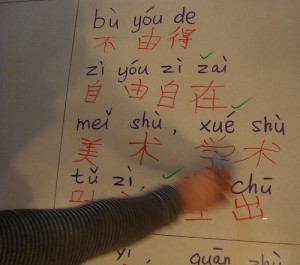 bù yóu de
不 由 得
zì yóu zì zài
自 由 自 在
meǐ shù , xué shù
美 术 学 术
tǔ zì , chū
吐 出
yì quān zhù